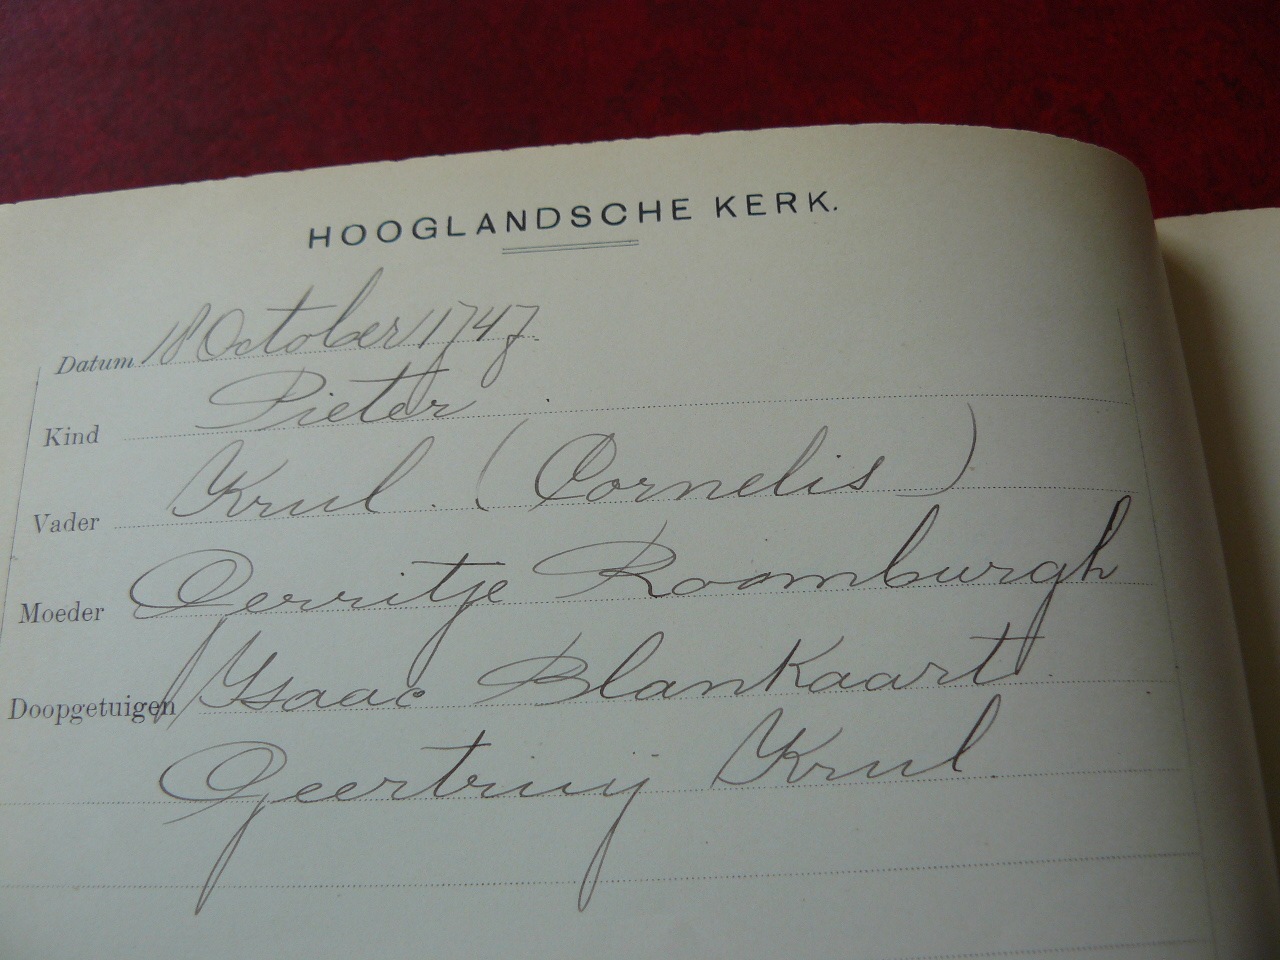 HOOGLANDSCHE KERK.
Datum 18 October 1747.
Kind Pieter
Vader Krul. (Cornelis)
Moeder Gerritje Roomburgh
Doopgetuigen Ysaac Blankaart
Geertruij Krul.